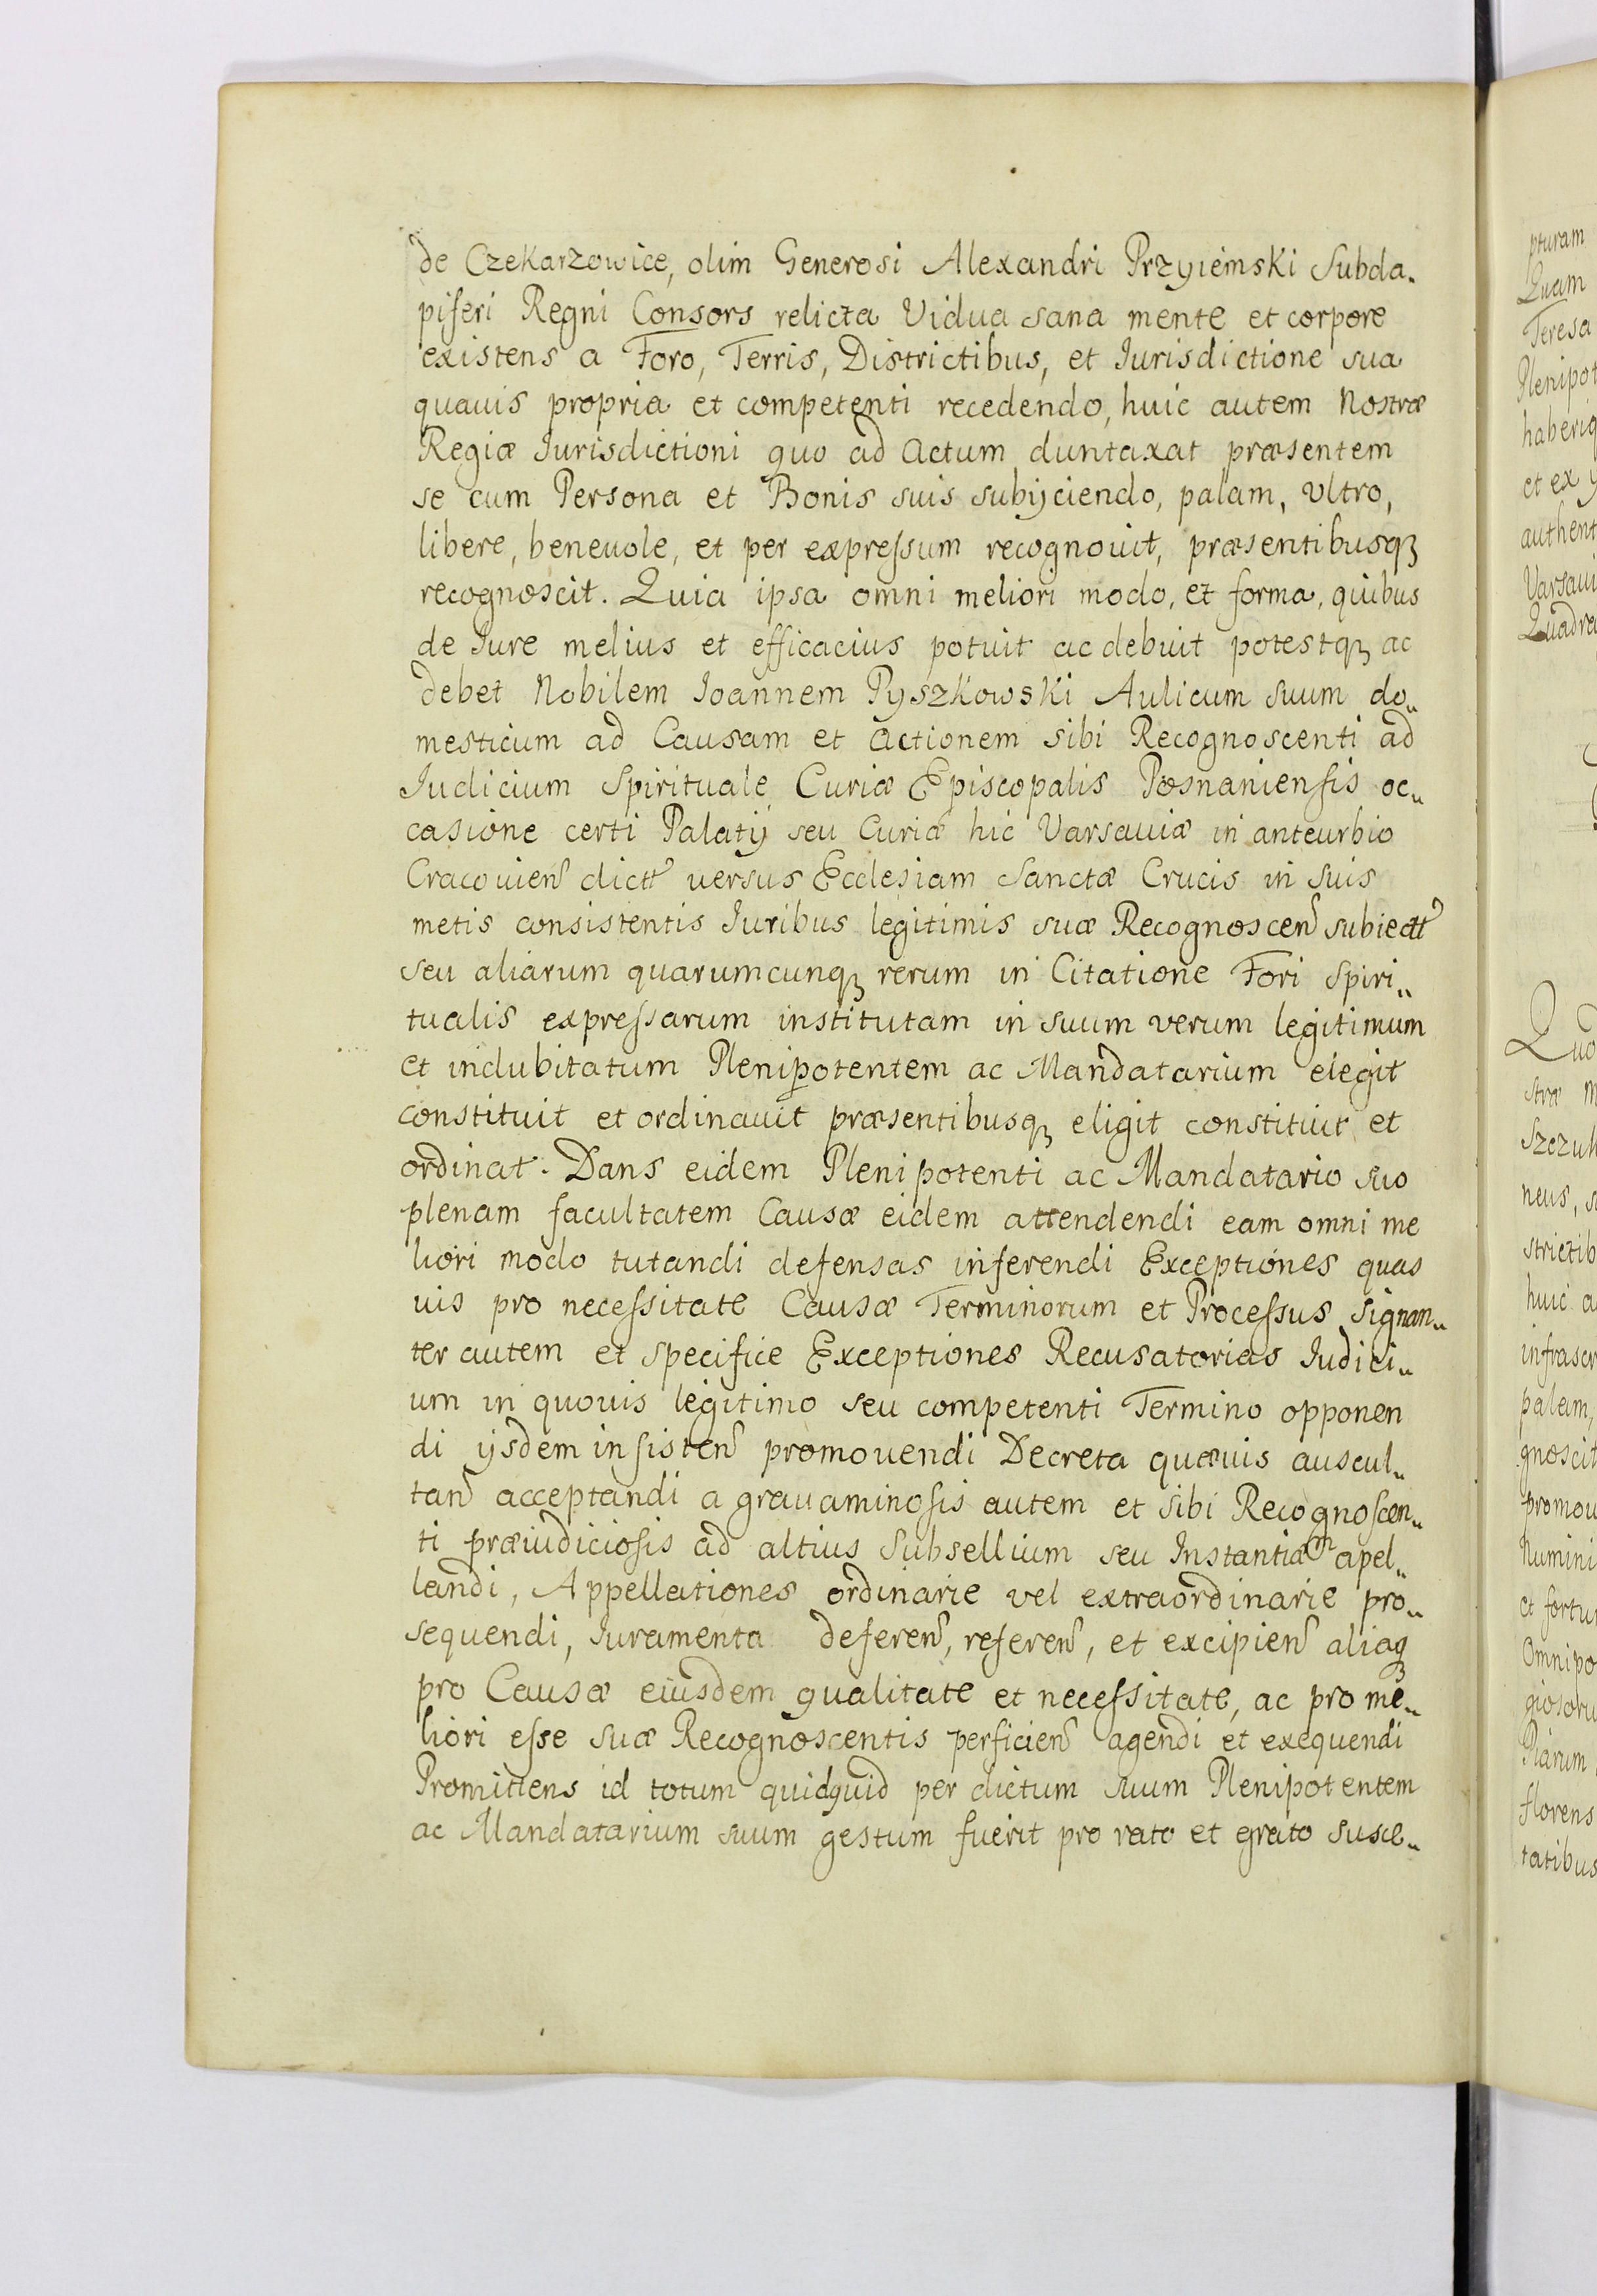 de Czekarzowice, olim Generosi Alexandri Przyiemski Subda-
piferi Regni Consors relicta Vidua sana mente et corpore
existens a Foro, Terris, Districtibus, et Iurisdictione sua
quauis propria et competenti recedendo, huic autem Nostræ
Regiæ Iurisdictioni quo ad Actum duntaxat præsentem
se cum Persona et Bonis suis subijciendo, palam, Vltro,
libere, beneuole, et per expreſsum recognouit, præsentibusqꝫ
recognoscit. Quia ipsa omni meliori modo, et forma, quibus
de Iure melius et efficacius potuit ac debuit potestqꝫ ac
debet Nobilem Ioannem Pyszkowski Aulicum suum do„
mesticum ad Causam et Actionem sibi Recognoscenti ad
Iudicium Spirituale Curiæ Episcopalis Posnanienſis oc„
casione certi Palatij seu Curiæ hic Varsauiæ in anteurbio
Cracouien̄ dictæ versus Ecclesiam Sanctæ Crucis in suis
metis consistentis Iuribus legitimis suæ Recognoscen̄ subiectæ
seu aliarum quarumcunqꝫ rerum in Citatione Fori Spiri„
tualis expreſsarum institutam in suum verum legitimum
et indubitatum Plenipotentem ac Mandatarium elegit
constituit et ordinauit præsentibusqꝫ eligit constituit et
ordinat. Dans eidem Plenipotenti ac Mandatario suo
plenam facultatem Causæ eidem attendendi eam omni me
liori modo tutandi defensas inferendi Exceptiones quas
uis pro neceſsitate Causæ Terminorum et Proceſsus signan„
ter autem et specifice Exceptiones Recusatorias Iudici„
um in quouis legitimo seu competenti Termino opponen
di ijsdem inſisten̄ promouendi Decreta quæuis auscul„
tan̄ acceptandi a grauaminoſis autem et sibi Recognoſcen„
ti præiudicioſis ad altius Subsellium seu Instantiam apel„
landi, Appellationes ordinarie vel extraordinarie pro„
sequendi, Iuramenta deferen̄, referen̄, et excipien̄ aliaqꝫ
pro Causæ eiusdem qualitate et neceſsitate, ac pro me„
liori eſse suæ Recognoscentis perficien̄ agendi et exequendi
Promittens id totum quidquid per dictum suum Plenipotentem
ac Mandatarium suum gestum fuerit pro rato et grato susce„
pturam
Quam
Teresa
Plenipot
haberiq
et ex
authent
Varsaui
Quadra
Quo
stræ
neus,
strictib
huic a
infrascr
palam,
gnoscit
promou
Numini
et fortu
Omnipo
Piarum
florens
tatibus